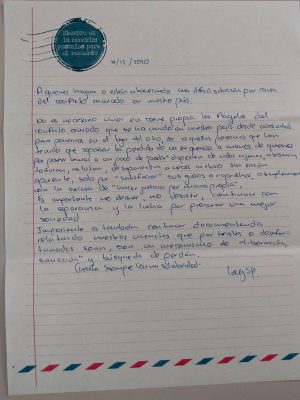 Siempre en
la memoria:
postales para
el recuerdo
11/12/2020
A quienes hayan o estén atravesando una difícil situación por causa
del conflicto armado en nuestro país.
No es necesario vivir en carne propia los flagelos del
conflicto armado que se ha vivido en nuestro país desde
para ponernos en el lugar del otro, de aquellas personas que han
tenido que soportar la pérdida de un ser querido a manos de quienes
por poseer armas o un poco de poder disponen de vidas ajenas, abusan,
torturan, mutilan, desaparecen a veces incluso sin razón
aparente, solo por "satisfacer" sus gustos o egoísmo, o simplemente
con la excusa de "hacer justicia por mano propia".
Es importante no decaer, no desistir, continuar con
la esperanza y la lucha por procurar una mejor
sociedad.
Importante es también continuar documentando,
relatando nuestras vivencias que por tristes o desafor-
tunados sean, son un mecanismo de
sanación" y búsqueda de perdón.
Cuenten siempre con mi solidaridad.